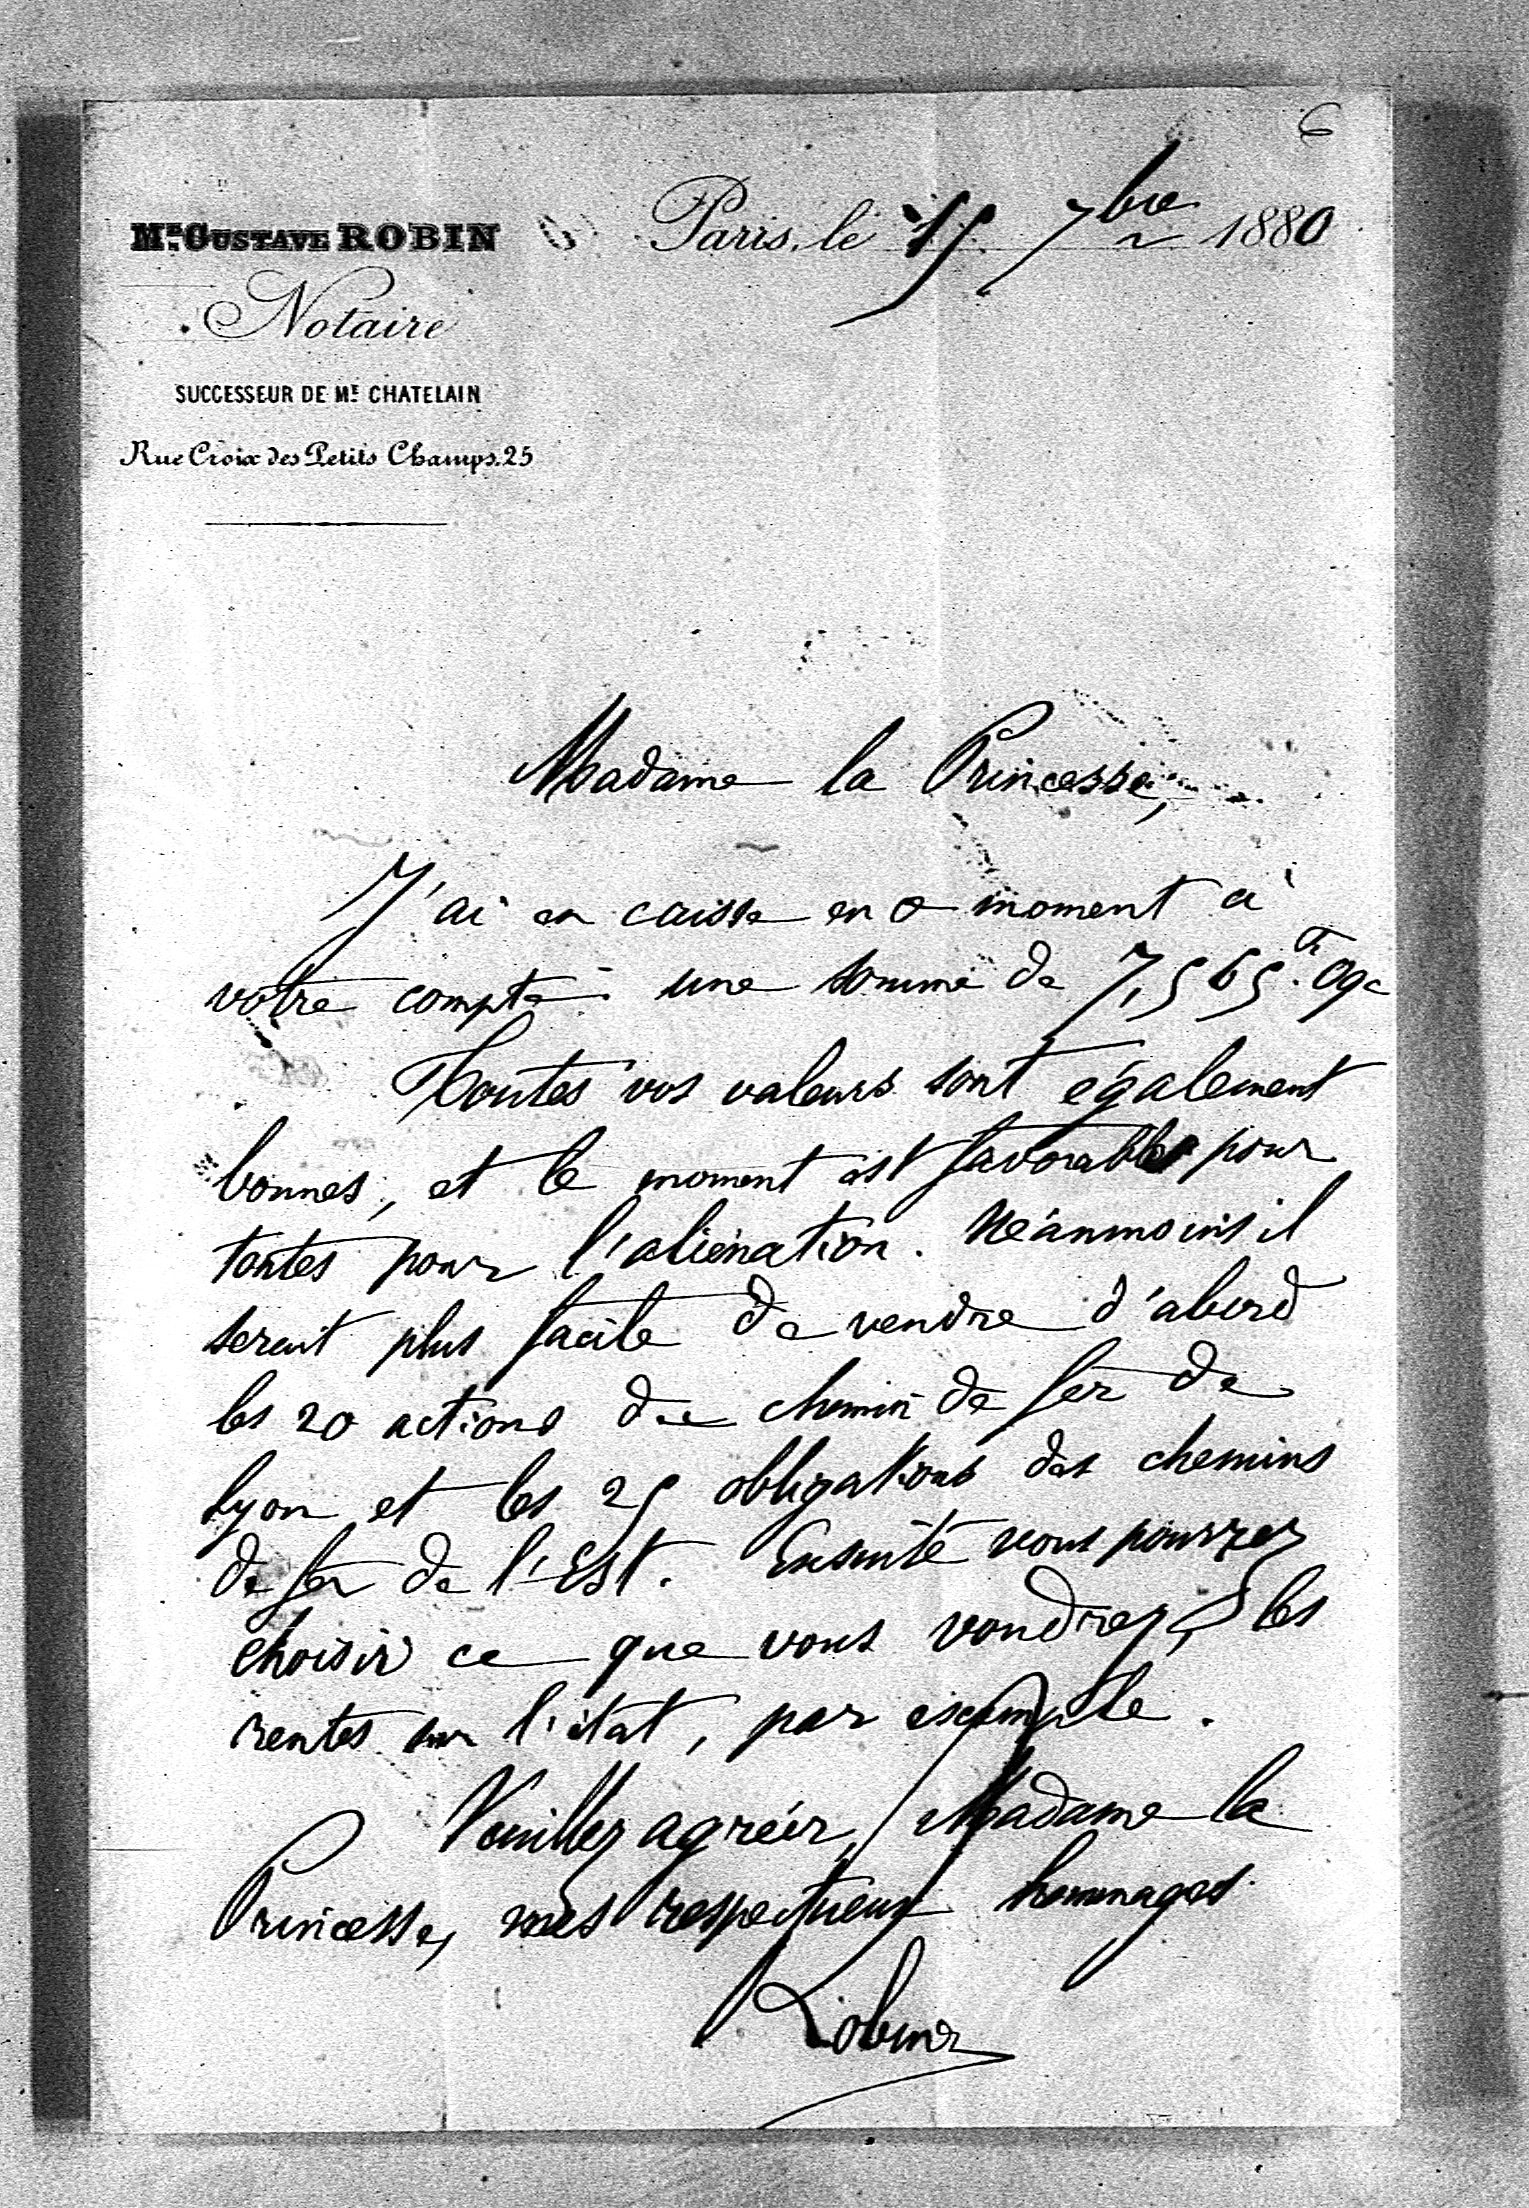 6
Mᵉ GUSTAVE ROBIN
Paris, le 15 7bre 1880
Notaire
SUCCESSEUR DE Mᵉ CHATELAIN
Rue Croix des Petits Champs. 25
Madame la Princesse,
J'ai en caisse en ce moment à
votre compte une somme de 7,565 fr. 09c
Toutes vos valeurs sont également
bonnes, et le moment est favorable pour
toutes pour l'aliénation. Néanmoins il
serait plus facile de vendre d'abord
les 20 actions de chemin de fer de
Lyon et les 25 obligations des chemins
de fer de l'Est. Ensuite vous pourrez
choisir ce que vous voudrez, les
rentes sur l'état, par exemple.
Veuillez agréer, Madame la
Princesse, mes respectueux hommages.
Robin